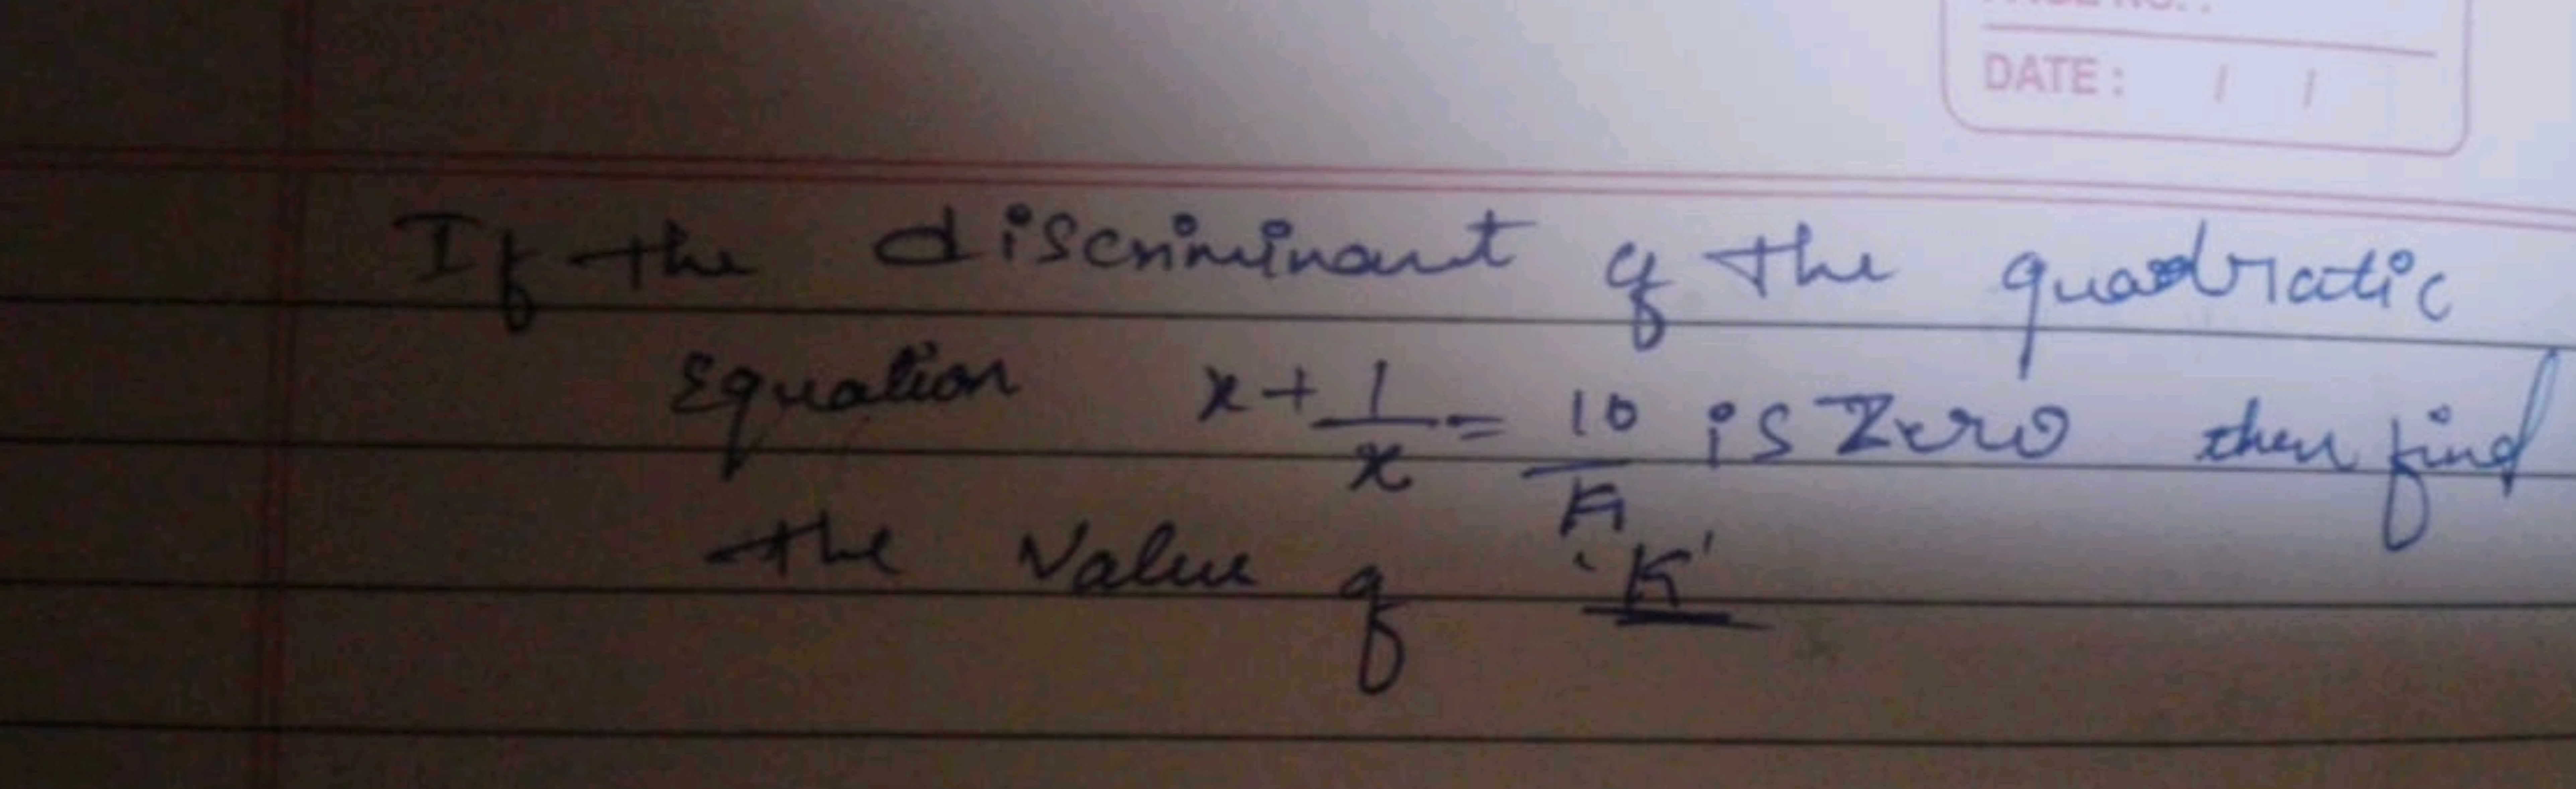 DATE : / /
If the discriminant of the quadratic
Equation x + 1/x = 10/K is Zero then find
the Value of 'K'